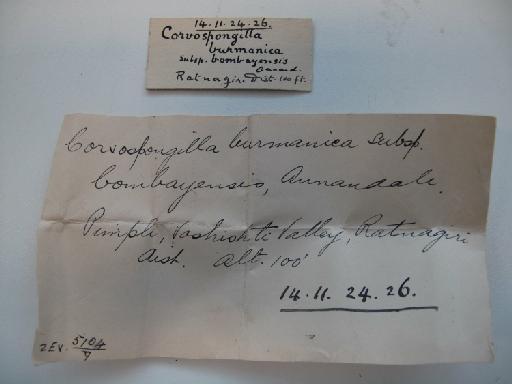 14.11.24.26.
Corvospongilla
burmanica
subsp. bombayensis
Annand.
Ratnagiri Dist. 100 ft.
Corvospongilla burmanica subsp.
bombayensis, Annandale.
Pimple, Vashishti Valley, Ratnagiri
dist. alt. 100'
14.11.24.26.
ZEV. 5104/7